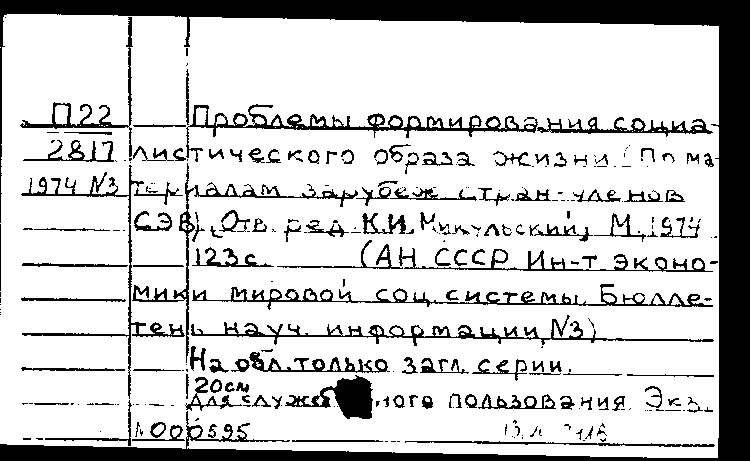 П22 Проблемы формирования социа-
2817 листического образа жизни (По ма-
1974 N3 териалам зарубеж стран-членов
СЭВ). Отв. ред К.И. Микульский, М, 1974
123с. (АН СССР Ин-т эконо-
мики мировой соц системы. Бюлле-
тень науч. информации, N3)
На обл. только загл. серии.
20см
Для пользования Экз.
N000595